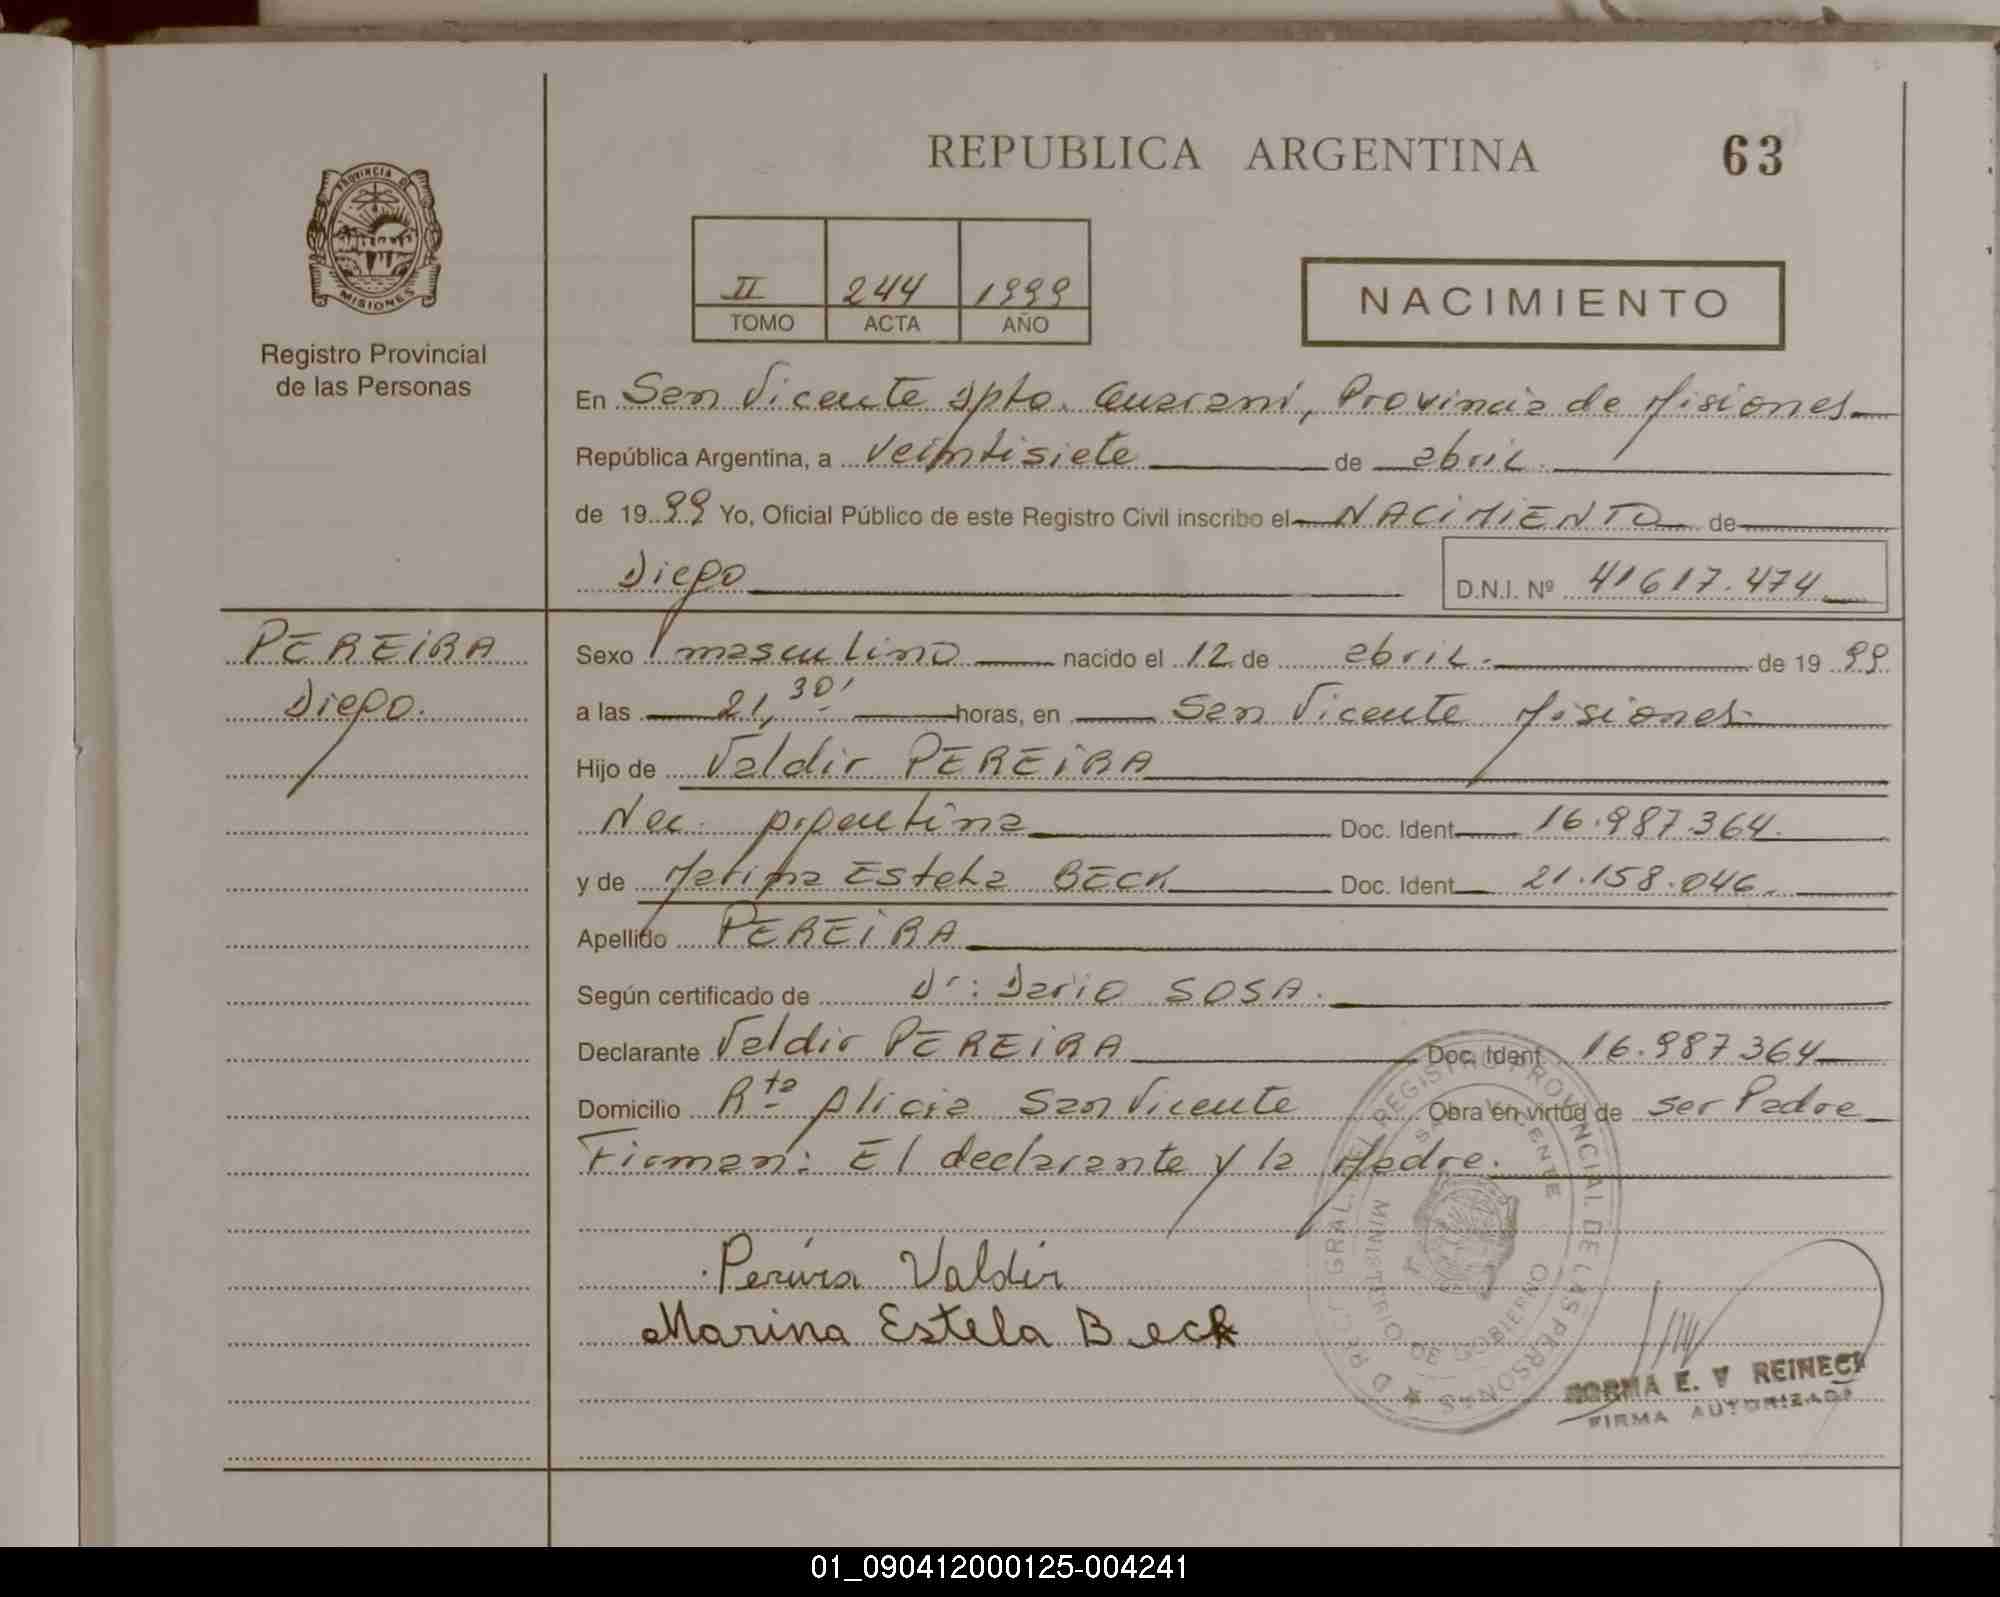 REPUBLICA ARGENTINA 63
PROVINCIA DE
MISIONES
Registro Provincial
de las Personas
II 244 1999
TOMO ACTA AÑO
NACIMIENTO
En San Vicente Dpto. Guarani, Provincia de Misiones
República Argentina, a veintisiete de abril.
de 1999 Yo, Oficial Público de este Registro Civil inscribo el NACIMIENTO de
Diego D.N.I. Nº 41617.474
PEREIRA
Diego.
Sexo masculino nacido el 12 de abril. de 1999
a las 21,30' horas, en San Vicente Misiones
Hijo de Valdir PEREIRA
Nac. argentina Doc. Ident. 16.987.364.
y de Marina Estela BECK Doc. Ident. 21.158.046.
Apellido PEREIRA
Según certificado de Dr: Dario SOSA.
Declarante Valdir PEREIRA Doc. Ident. 16.987364
Domicilio Rta Alicia San Vicente Obra en virtud de ser Padre
Firman: El declarante y la Madre.
Pereira Valdir
Marina Estela Beck
GRAL. DEL REGISTRO PROVINCIAL DE LAS PERSONAS
SAN VICENTE
MINISTERIO DE GOBIERNO
NORMA E. V REINECK
FIRMA AUTORIZADA
01_090412000125-004241